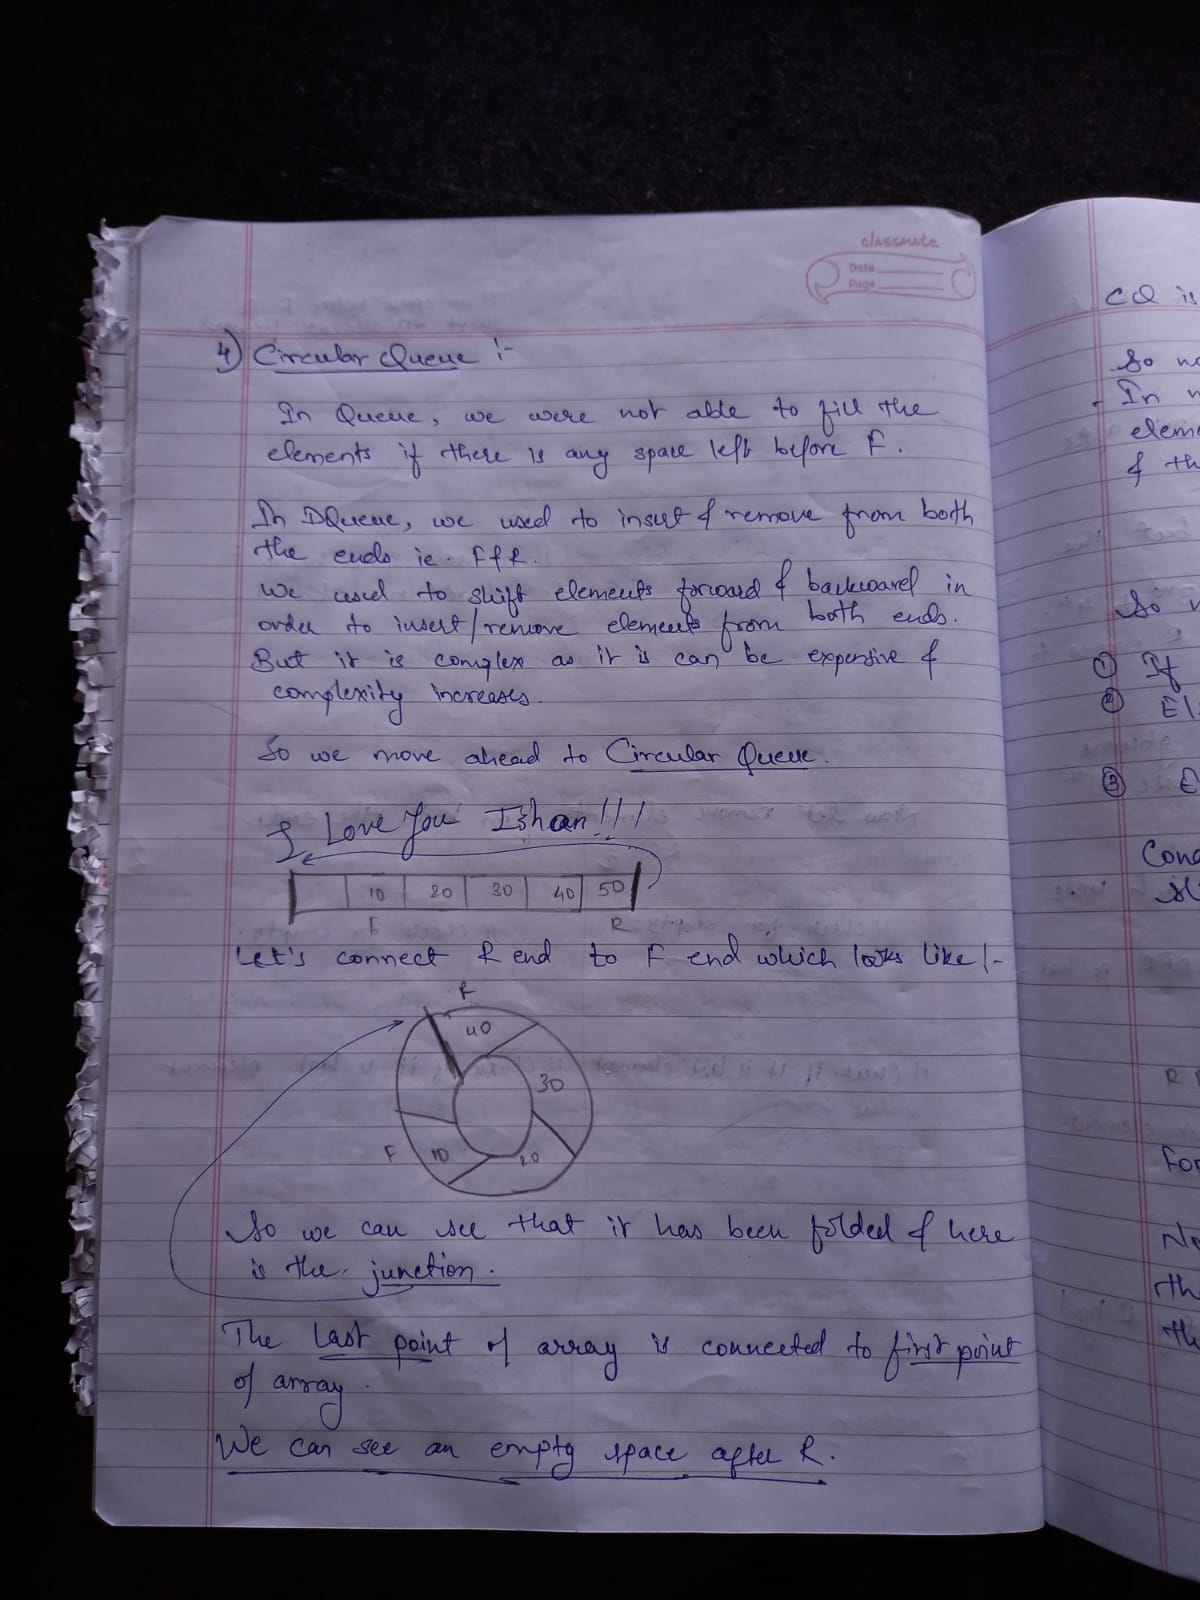 classmate
Date
Page
4) Circular Queue :-
In Queue, we were not able to fill the
elements if there is any space left before F.
In DQueue, we used to insert & remove from both
the ends ie. F & R.
We used to shift elements forward & backward in
order to insert/remove elements from both ends.
But it is complex as it is can be expensive &
complexity increases.
So we move ahead to Circular Queue.
I Love You Ishan!!!
10 20 30 40 50
F R
Let's connect R end to F end which looks like :-
R
40
30
F 10 20
So we can see that it has been folded & here
is the junction.
The last point of array is connected to first point
of array.
We can see an empty space after R.
CQ is
So
In
& th
So
① If
②
③ E
R
For
No
th
th